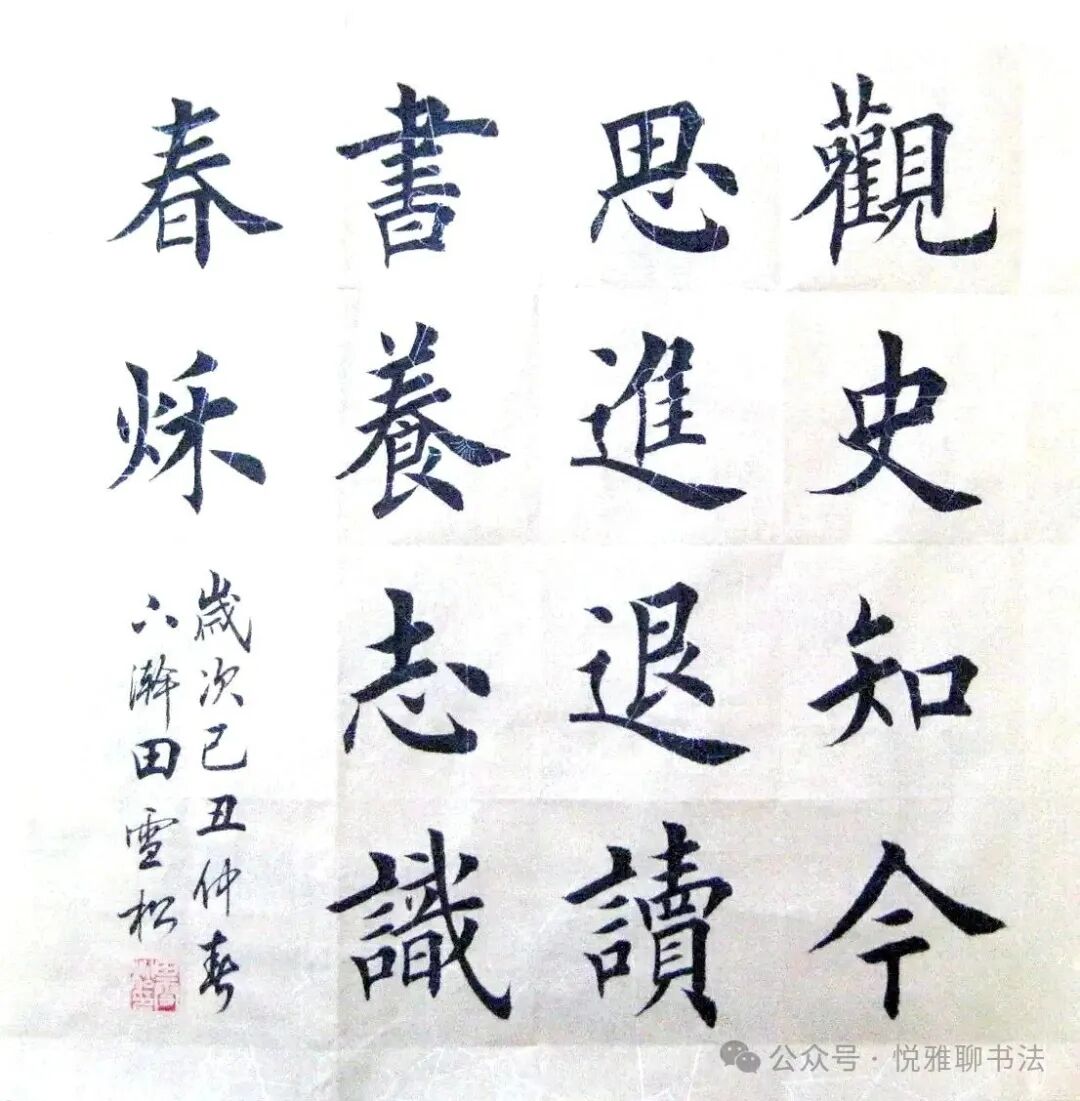 觀史知今
思進退讀
書養志識
春秌
歲次己丑仲春
下澣田雪松
公众号·悦雅聊书法